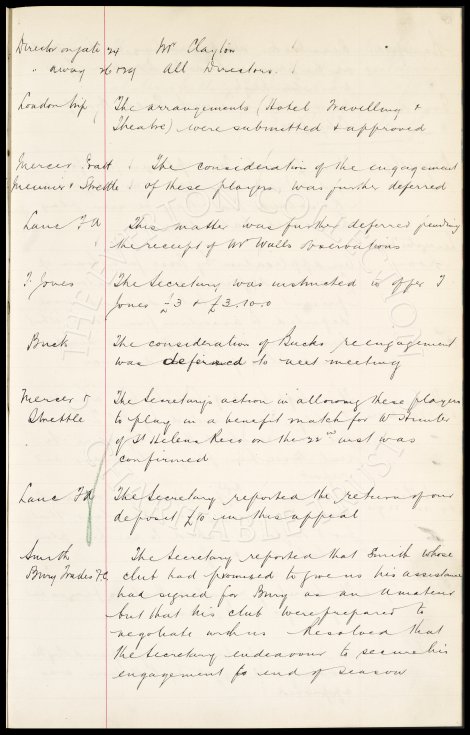 Director on gate 24 Mr Clayton
" away 26 & 29 All Directors.
London trip The arrangements (Hotel Travelling &
Theatre) were submitted & approved
Mercer The consideration of the engagement
Meunier & Strettle of these players was further deferred
Lanc F A This matter was further deferred pending
the receipt of Mr Walls observations
T. Jones The Secretary was instructed to offer T
Jones £3 & £3.10.0
Buck The consideration of Bucks re engagement
was deferred to next meeting
Mercer & The Secretarys action in allowing these players
Strettle to play in a benefit match for W
of St Helens Recs on the 22nd inst was
confirmed
Lanc F A The Secretary reported the return of our
deposit £10 in this appeal
Smith The Secretary reported that Smith whose
Bury Trades F.C. club had promised to give us his assistance
had signed for Bury as an Amateur
but that his club were prepared to
negotiate with us Resolved that
the Secretary endeavour to secure his
engagement for end of season
THE EVERTON COLLECTION
CHARITABLE TRUST